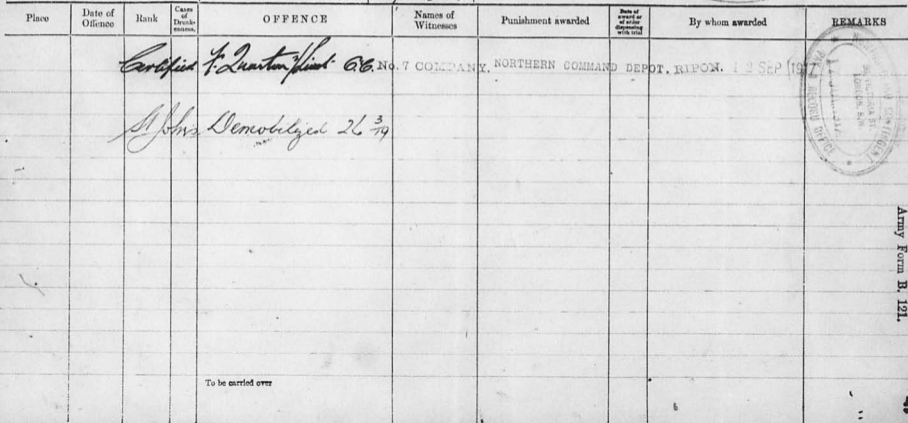 Place Date of Offence Rank Cases of Drunkenness. OFFENCE Names of Witnesses Punishment awarded Date of award or of order dispensing with trial By whom awarded REMARKS
Certified F. Quarton Lieut. O.C. No. 7 COMPANY. NORTHERN COMMAND DEPOT, RIPON. 12 SEP 191
St Johns. Demobilized 26 3/19
VICTORIA ST.
LONDON, S.W.
NEWFOUNDLAND CONTINGENT
PAY & RECORD OFFICE
To be carried over
Army Form B. 121.